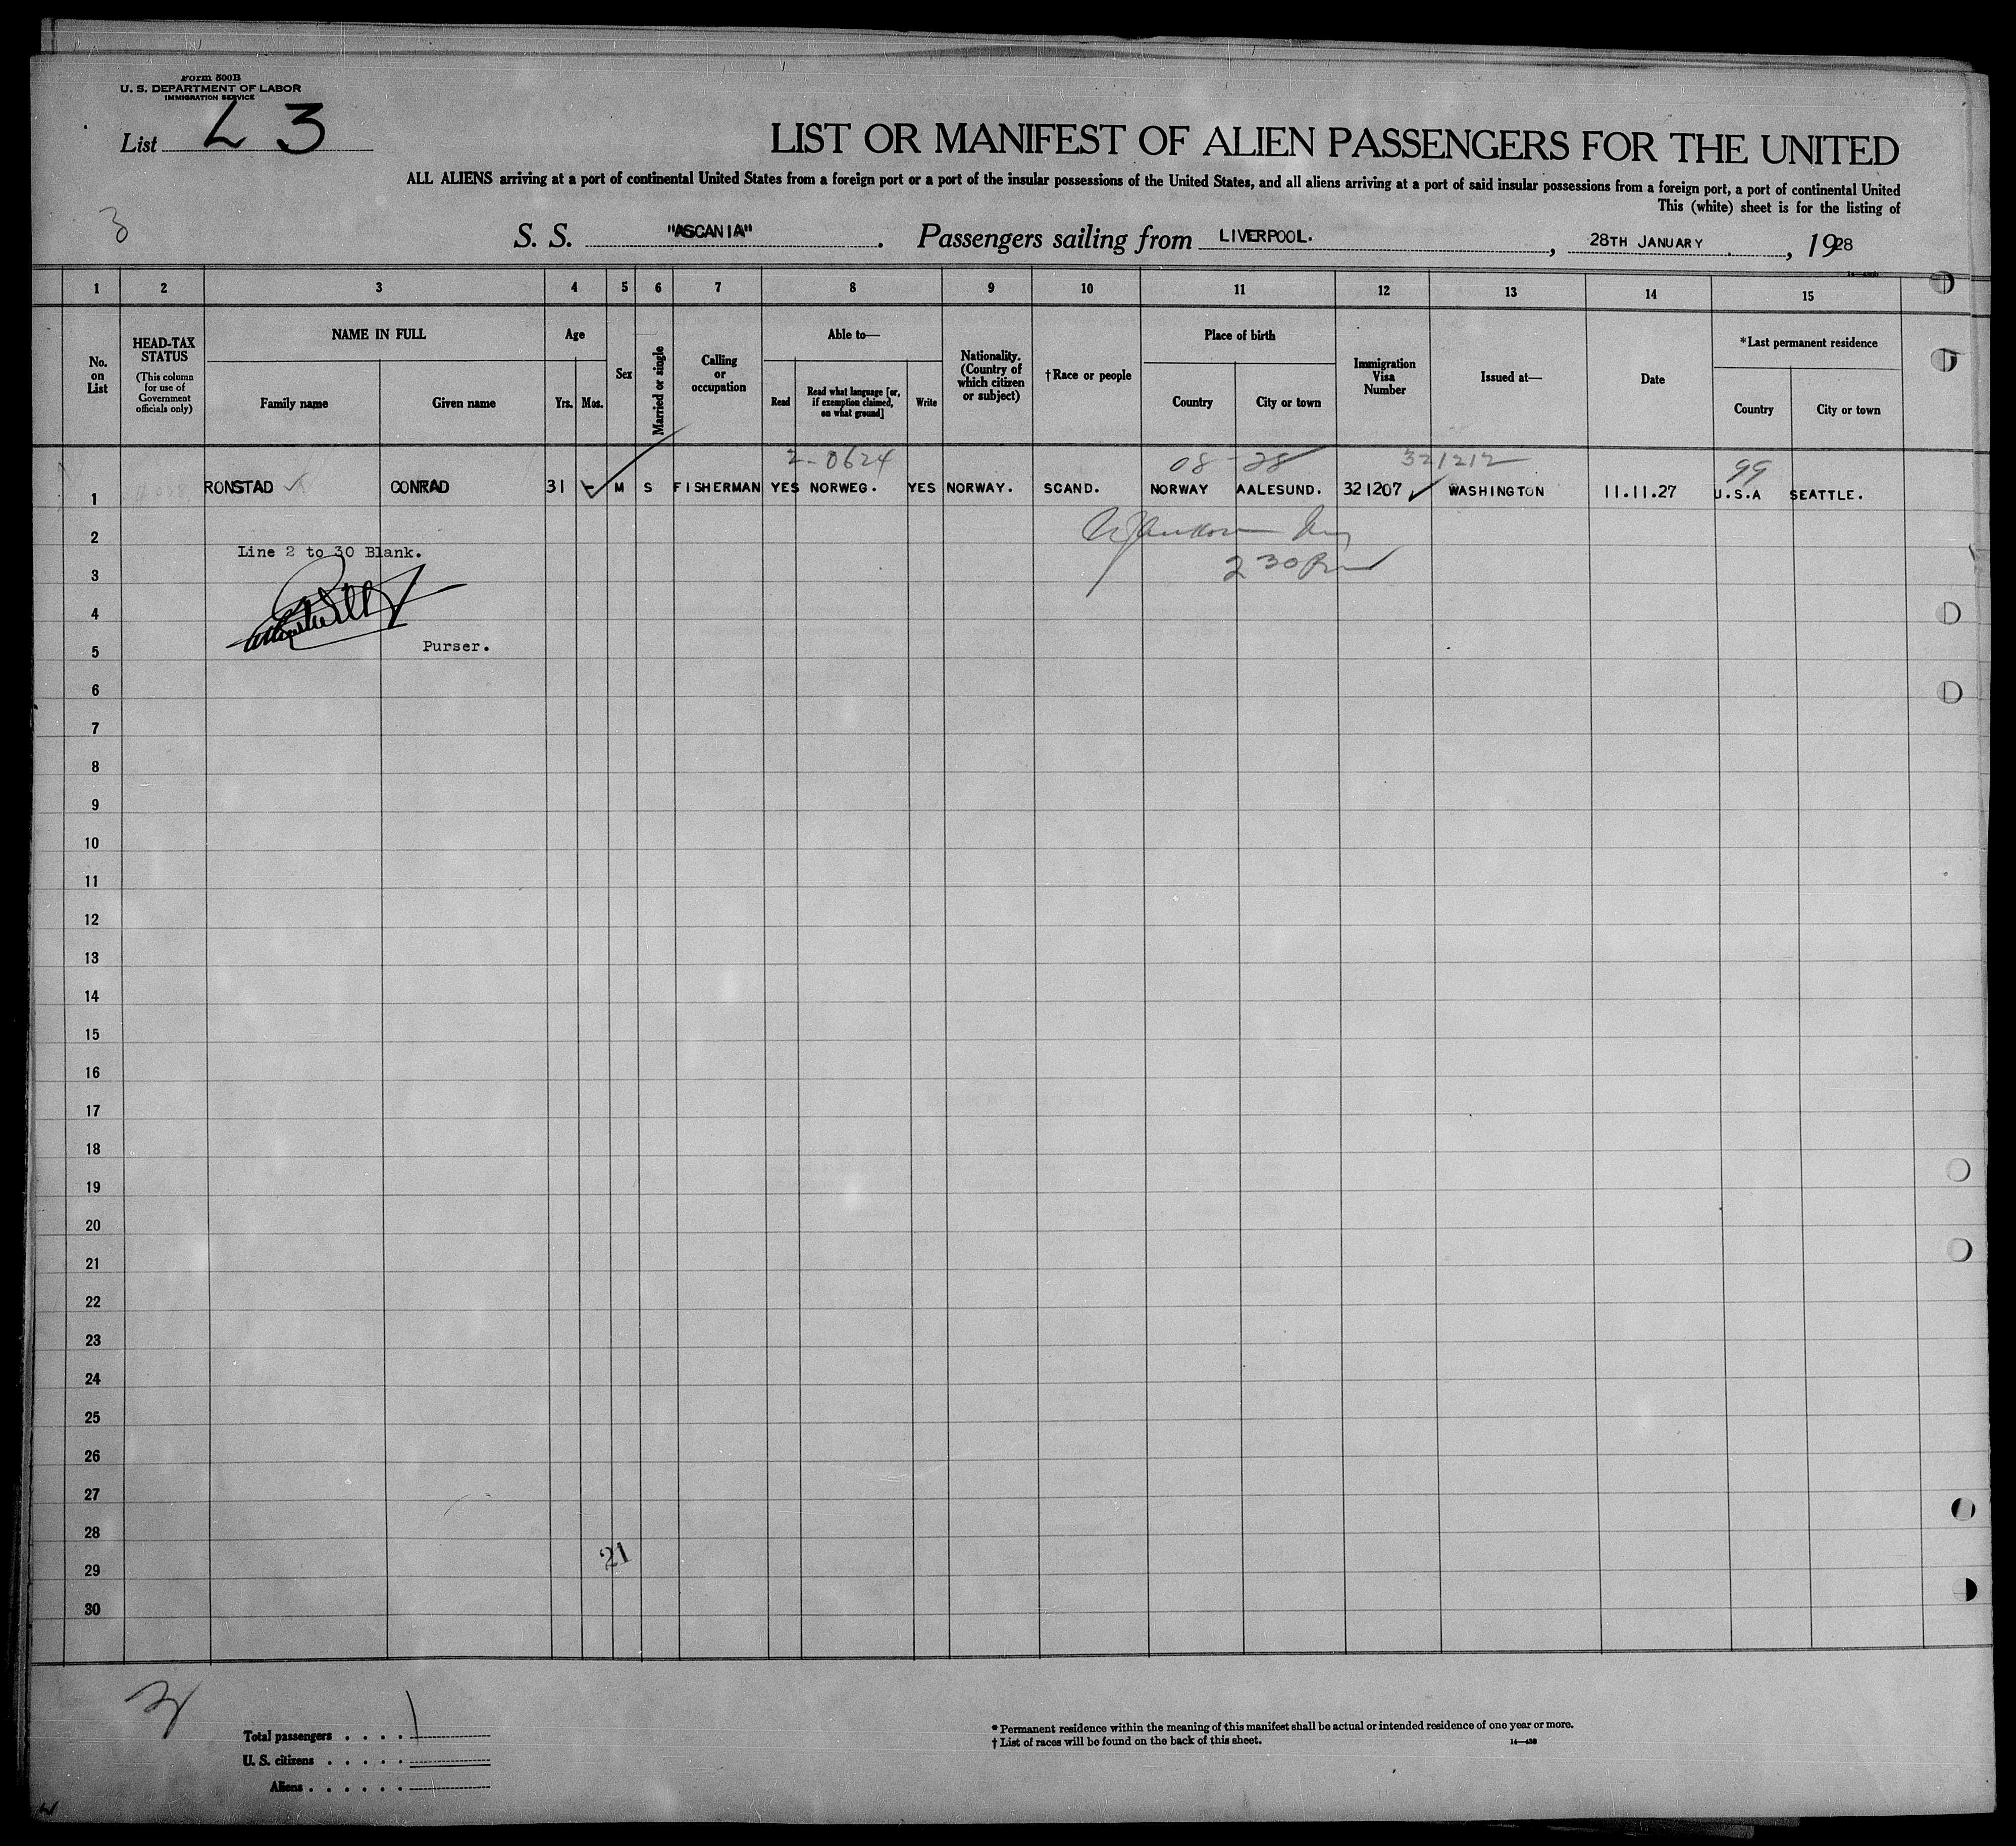 Form 500B
U. S. DEPARTMENT OF LABOR
IMMIGRATION SERVICE
List L 3
LIST OR MANIFEST OF ALIEN PASSENGERS FOR THE UNITED
ALL ALIENS arriving at a port of continental United States from a foreign port or a port of the insular possessions of the United States, and all aliens arriving at a port of said insular possessions from a foreign port, a port of continental United
This (white) sheet is for the listing of
3
S. S. "ASCANIA". Passengers sailing from LIVERPOOL., 28TH JANUARY, 1928
1 2 3 4 5 6 7 8 9 10 11 12 13 14 15
No. on List
HEAD-TAX STATUS (This column for use of Government officials only)
NAME IN FULL
Family name Given name
Age
Yrs. Mos.
Sex
Married or single
Calling or occupation
Able to—
Read
Read what language [or, if exemption claimed, on what ground]
Write
Nationality. (Country of which citizen or subject)
†Race or people
Place of birth
Country City or town
Immigration Visa Number
Issued at—
Date
*Last permanent residence
Country City or town
2-0624 08-28 321212 99
1 RONSTAD CONRAD 31 - M S FISHERMAN YES NORWEG. YES NORWAY. SCAND. NORWAY AALESUND. 321207 WASHINGTON 11.11.27 U.S.A SEATTLE.
2
Line 2 to 30 Blank.
2 30 Pm
3
4
Purser.
5
6
7
8
9
10
11
12
13
14
15
16
17
18
19
20
21
22
23
24
25
26
27
28
21
29
30
Total passengers . . . . 1
U. S. citizens . . . . .
Aliens . . . . . .
* Permanent residence within the meaning of this manifest shall be actual or intended residence of one year or more.
† List of races will be found on the back of this sheet.